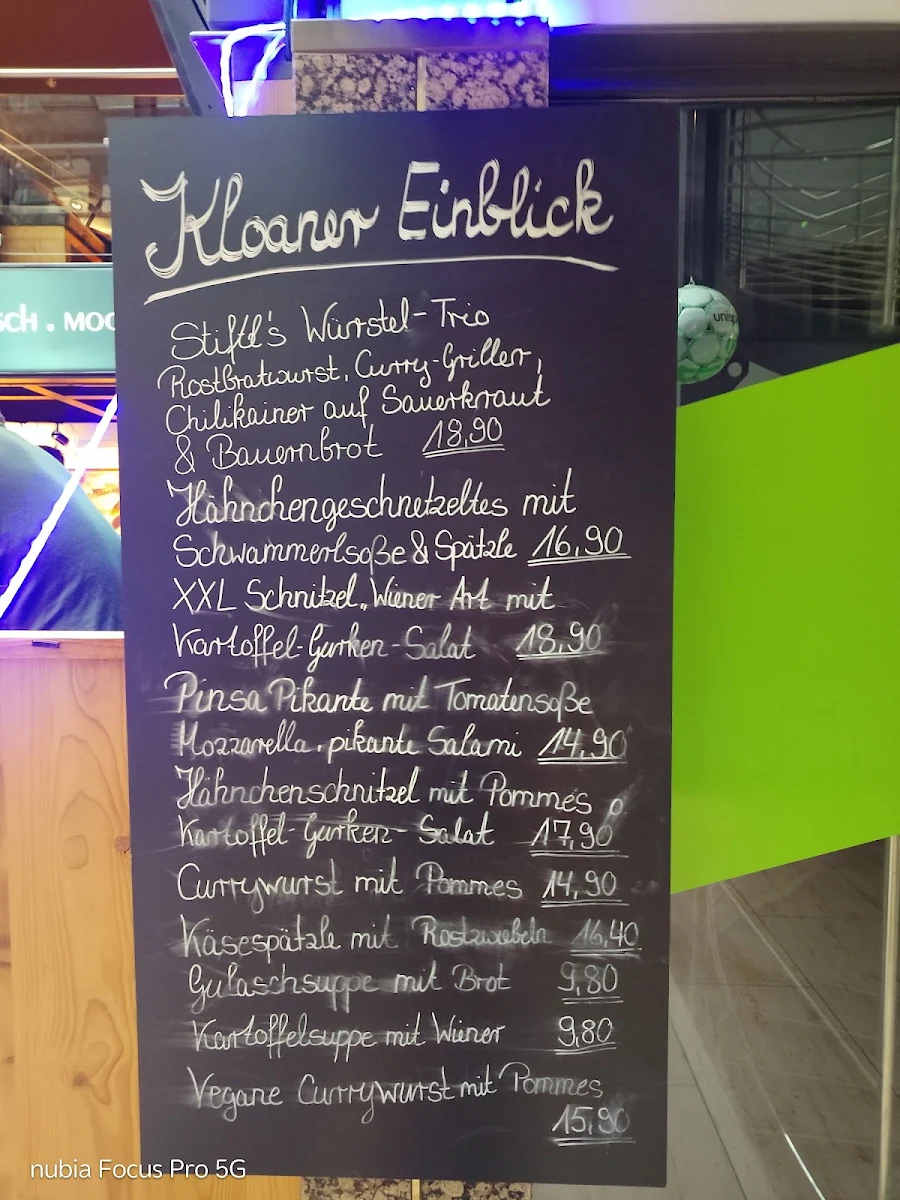 Kloaner Einblick
Stiftl's Würstel-Trio
Rostbratwurst, Curry-Griller,
Chilikainer auf Sauerkraut
& Bauernbrot 18,90
Hähnchengeschnetzeltes mit
Schwammerlsoße & Spätzle 16,90
XXL Schnitzel „Wiener Art mit
Kartoffel-Gurken-Salat 18,90
Pinsa Pikante mit Tomatensoße
Mozzarella, pikante Salami 14,90
Hähnchenschnitzel mit Pommes o
Kartoffel-Gurken-Salat 17,90
Currywurst mit Pommes 14,90
Käsespätzle mit Rostzwiebeln 16,40
Gulaschsuppe mit Brot 9,80
Kartoffelsuppe mit Wiener 9,80
Vegane Currywurst mit Pommes
15,90
SCH . MOO
nubia Focus Pro 5G